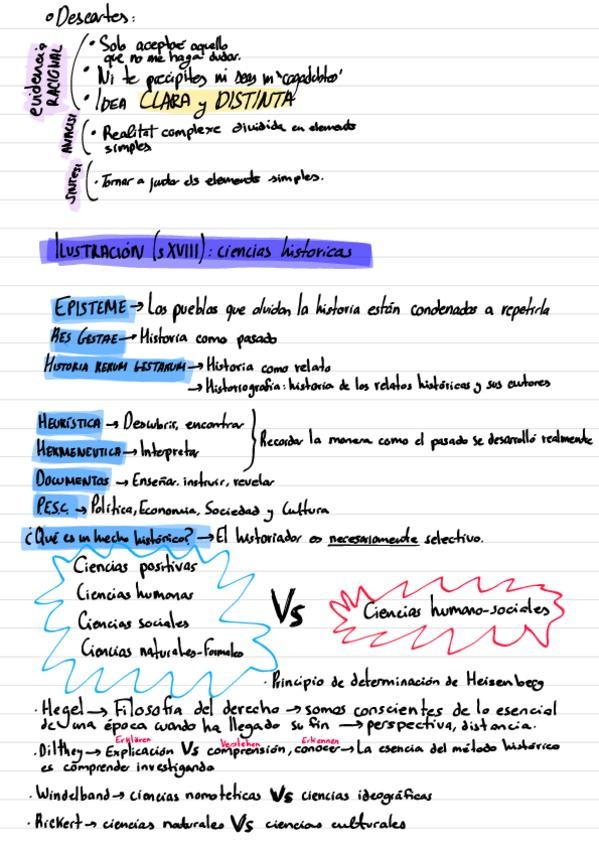 • Descartes:
evidencia RACIONAL
• Solo aceptaré aquello
que no me haga dudar.
• Ni te precipites ni seas un "cagadubtes"
• IDEA CLARA y DISTINTA
ANALISI
• Realitat complexe dividida en elements
simples
SINTESI
• Tornar a juntar els elements simples.
ILUSTRACIÓN (s XVIII): ciencias historicas
EPISTEME → Los pueblos que olvidan la historia están condenados a repetirla
RES GESTAE → Historia como pasado
HISTORIA RERUM GESTARUM → Historia como relato
→ Historiografia: historia de los relatos históricos y sus autores
HEURÍSTICA → Descubrir, encontrar
HERMENEUTICA → Interpretar
Recordar la manera como el pasado se desarrolló realmente
DOCUMENTOS → Enseñar, instruir, revelar
P.E.S.C. → Política, Economia, Sociedad y Cultura
¿Qué es un hecho histórico? → El historiador es necesariamente selectivo.
Ciencias positivas
Ciencias humanas
Ciencias sociales
Ciencias naturales-Formales
Vs
Ciencias humano-sociales
• Principio de determinación de Heisenberg
• Hegel → Filosofía del derecho → somos conscientes de lo esencial
de una época cuando ha llegado su fin → perspectiva, distancia.
Erklären Verstehen Erkennen
• Dilthey → Explicación Vs comprensión, conocer → La esencia del método histórico
es comprender investigando
• Windelband → ciencias nomoteticas Vs ciencias ideográficas
• Rickert → ciencias naturales Vs ciencias culturales